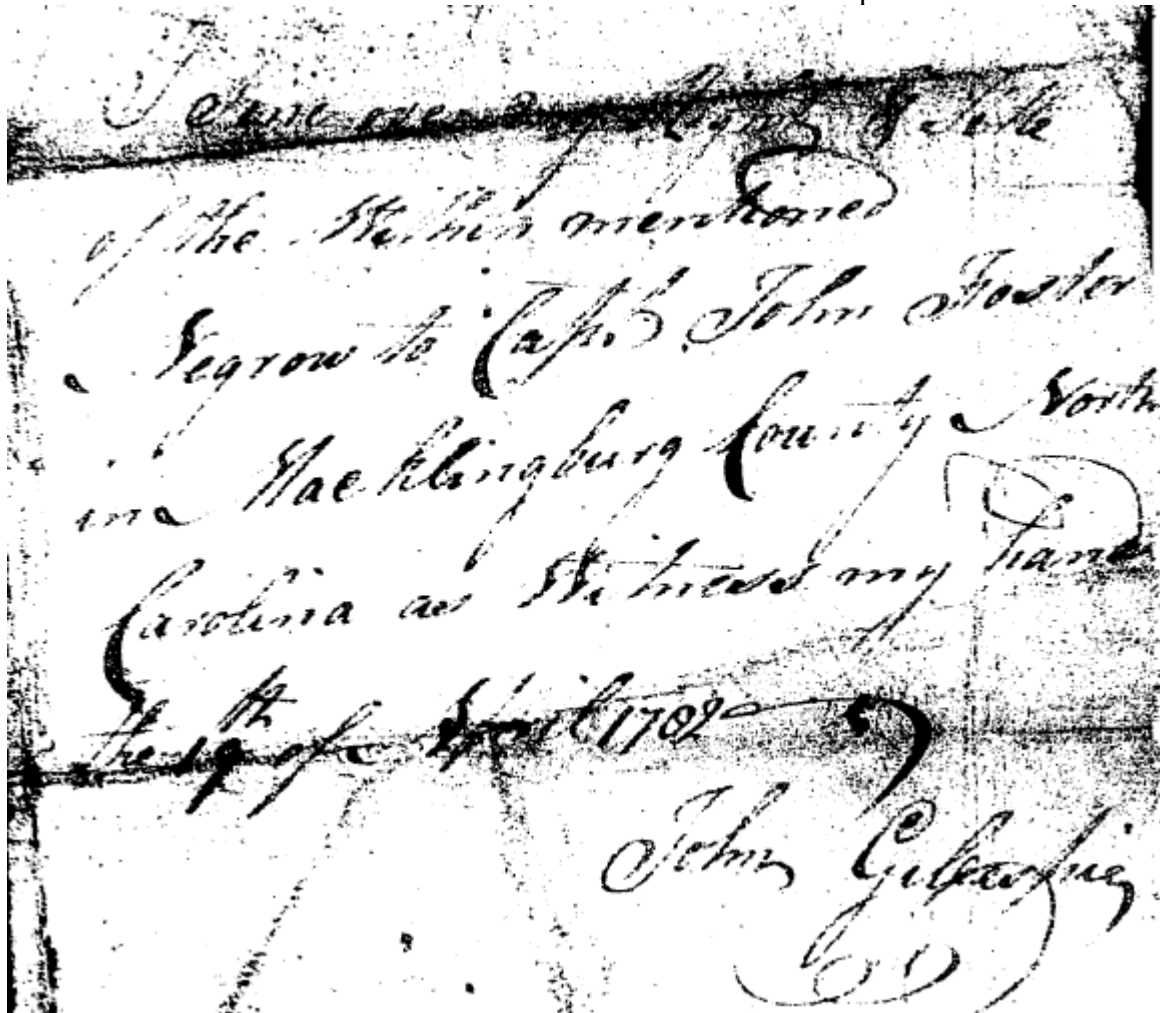 I Sine over my Right & Title
of the Within mentioned
Negrow to Capt. John Foster
in Macklingburg County North
Carolina as Witness my hand
the 19th of April 1782
John